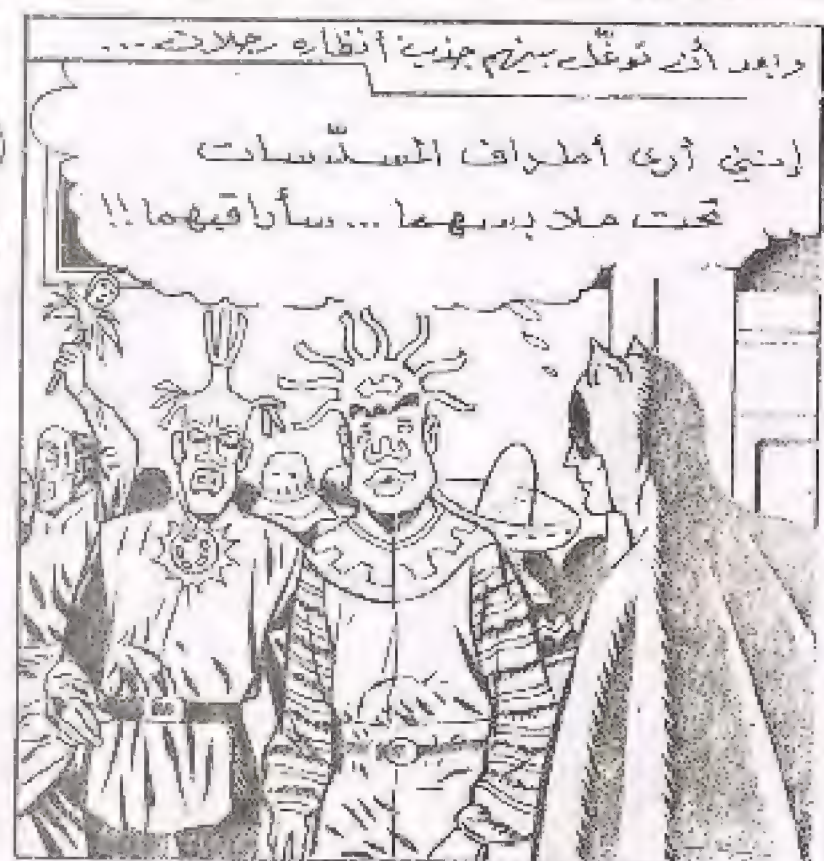 وبعد أن توغّل بينهم جذب أنظاره رجلان...
إنني أرى أطراف المسدّسات
تحت ملابسهما... سأراقبهما!!